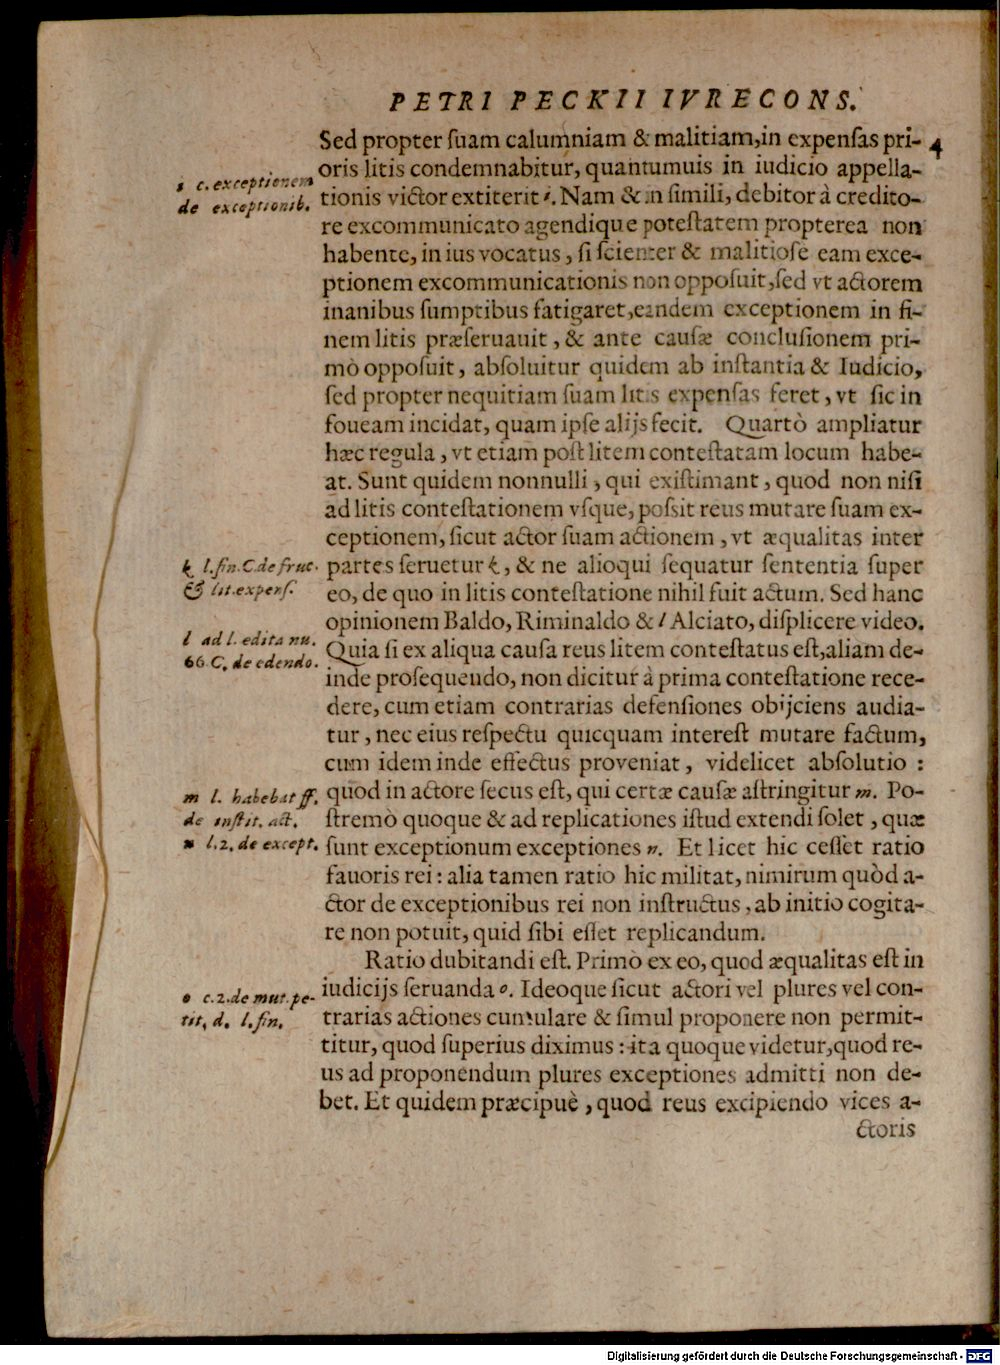 PETRI PECKII IVRECONS.
Sed propter ſuam calumniam & malitiam,in expenſas pri- 4
oris litis condemnabitur, quantumuis in iudicio appella-
tionis victor extiterit i. Nam & in ſimili, debitor à credito-
re excommunicato agendique poteſtatem propterea non
habente, in ius vocatus, ſi ſcienter & malitioſe eam exce-
ptionem excommunicationis non oppoſuit,ſed vt actorem
inanibus ſumptibus fatigaret,eandem exceptionem in fi-
nem litis præſeruauit, & ante cauſæ concluſionem pri-
mò oppoſuit, abſoluitur quidem ab inſtantia & Iudicio,
ſed propter nequitiam ſuam litis expenſas feret, vt ſic in
foueam incidat, quam ipſe alijs fecit. Quartò ampliatur
hæc regula, vt etiam poſt litem conteſtatam locum habe-
at. Sunt quidem nonnulli, qui exiſtimant, quod non niſi
ad litis conteſtationem vſque, poſsit reus mutare ſuam ex-
ceptionem, ſicut actor ſuam actionem, vt æqualitas inter
partes ſeruetur k, & ne alioqui ſequatur ſententia ſuper
eo, de quo in litis conteſtatione nihil fuit actum. Sed hanc
opinionem Baldo, Riminaldo & l Alciato, diſplicere video.
Quia ſi ex aliqua cauſa reus litem conteſtatus eſt,aliam de-
inde proſequendo, non dicitur à prima conteſtatione rece-
dere, cum etiam contrarias defenſiones obijciens audia-
tur, nec eius reſpectu quicquam intereſt mutare factum,
cum idem inde effectus proveniat, videlicet abſolutio :
quod in actore ſecus eſt, qui certæ cauſæ aſtringitur m. Po-
ſtremò quoque & ad replicationes iſtud extendi ſolet, quæ
ſunt exceptionum exceptiones n. Et licet hic ceſſet ratio
fauoris rei: alia tamen ratio hic militat, nimirum quòd a-
ctor de exceptionibus rei non inſtructus, ab initio cogita-
re non potuit, quid ſibi eſſet replicandum.
Ratio dubitandi eſt. Primò ex eo, quod æqualitas eſt in
iudicijs ſeruanda o. Ideoque ſicut actori vel plures vel con-
trarias actiones cumulare & ſimul proponere non permit-
titur, quod ſuperius diximus: ita quoque videtur,quod re-
us ad proponendum plures exceptiones admitti non de-
bet. Et quidem præcipuè, quod reus excipiendo vices a-
ctoris
i c. exceptionem
de exceptionib.
k l. fin. C. de fruc.
& lit. expenſ.
l ad l. edita nu.
66. C. de edendo.
m l. habebat ff.
de inſtit. act.
n l. 2. de except.
o c. 2. de mut. pe-
tit, d. l. fin.
Digitalisierung gefördert durch die Deutsche Forschungsgemeinschaft - DFG